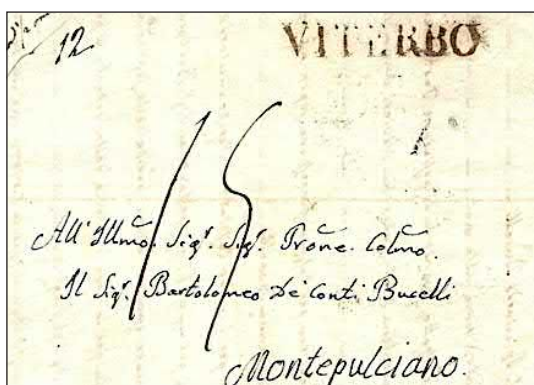 12
VITERBO
15
All' Illmo. Sigr. Sigr. Prone. Colmo.
Il Sigr. Bartolomeo De' Conti Bucelli
Montepulciano.